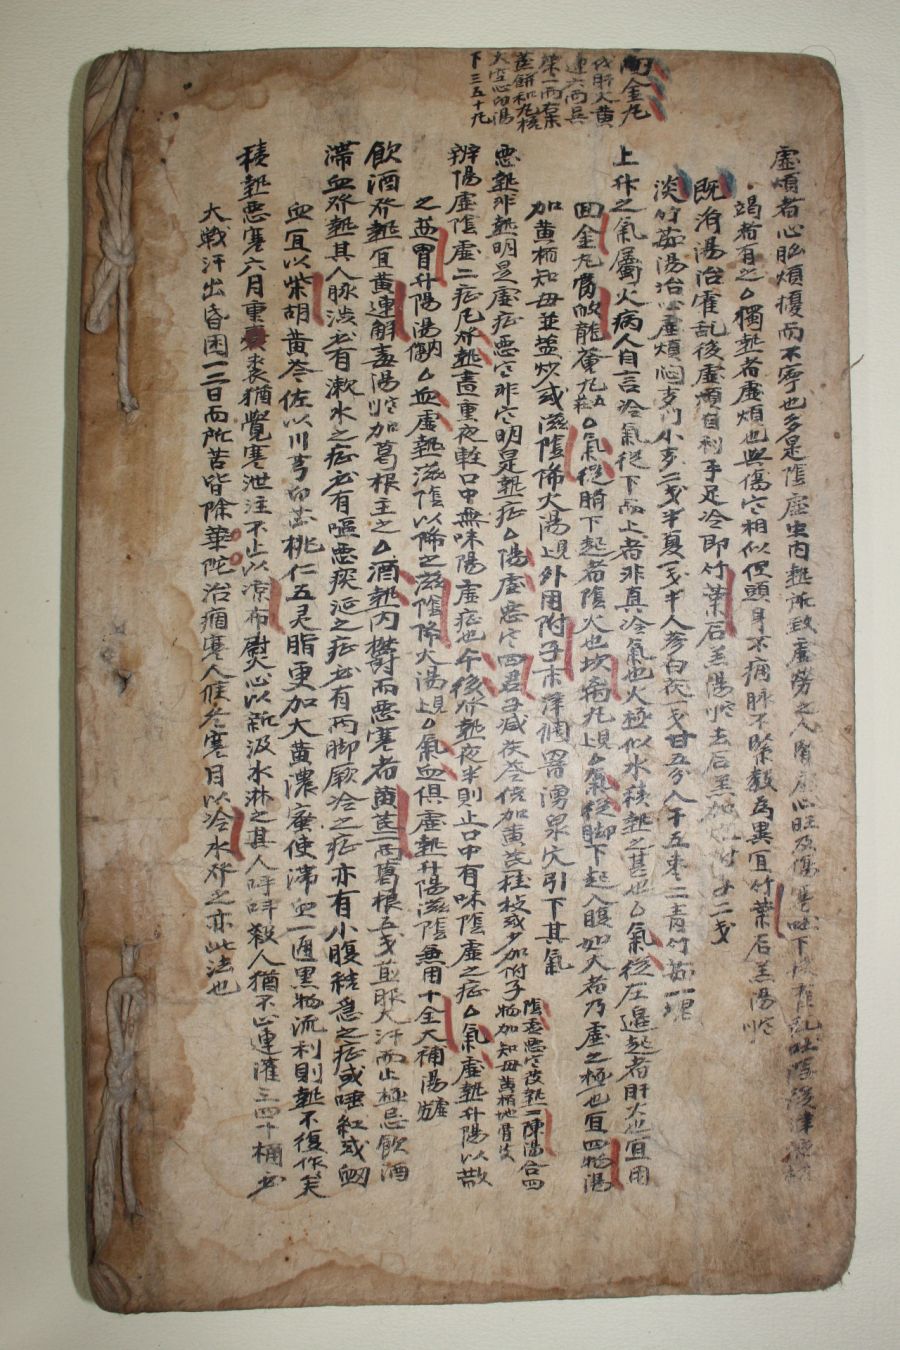 回金丸
伐肝火黃
連六兩吳
茱一兩右末
蒸餠和丸梧
大空心白湯
下三五十丸
虛煩者心胸煩擾而不寧也多是陰虛內熱所致虛勞之人腎虛心旺及傷寒吐下後霍亂吐瀉後津液枯
竭者有之△獨熱者虛煩也與傷寒相似但頭身不痛脉不緊數爲異宜竹葉石羔湯
旣濟湯治霍亂後虛煩自利手足冷卽竹葉石羔湯去石羔加附子二戔
淡竹茹湯治心虛煩悶麥門小麥二戔半夏一戔半人參白茯一戔甘五分人干五棗二靑竹茹一塊
上升之氣屬火病人自言冷氣從下而上者非眞冷氣也火極似水積熱之甚也△氣從左邊起者肝火也宜用
回金丸當歸龍薈丸△氣從臍下起者陰火也坎离丸△氣從脚下起入腹如火者乃虛之極也宜四物湯
加黃栢知母並盐炒或滋陰降火湯外用附子末津調罯湧泉穴引下其氣
惡熱非熱明是虛症惡寒非寒明是熱症△陽虛惡寒四君子减茯苓倍加黃芪桂枝或多加附子
陰虛惡寒發熱二陳湯合四
物加知母黃栢地骨皮
辨陽虛陰虛二症凡發熱晝重夜輕口中無味陽虛症也午後發熱夜半則止口中有味陰虛之症△氣虛熱升陽以散
之益胃升陽湯△血虛熱滋陰以降之滋陰降火湯△氣血俱虛熱升陽滋陰兼用十全大補湯
飮酒發熱宜黃連解毒湯加葛根主之△酒熱內欝而惡寒者黃芪一兩葛根五戔煎服大汗而止極忌飮酒
滯血發熱其人脉澁必有漱水之症必有嘔惡痰涎之症必有兩脚厥冷之症亦有小腹結急之症或唾紅或衄
血宜以柴胡黃芩佐以川芎白芷桃仁五灵脂更加大黃濃蜜使滯血一通黑物流利則熱不復作矣
積熱惡寒六月重裘猶覺寒泄注不止以凉布熨心以新汲水淋之其人呼叫殺人猶不止連灌三四十桶必
大戰汗出昏困一二日而所苦皆除華陀治痼寒人候冬寒月以冷水發之亦此法也